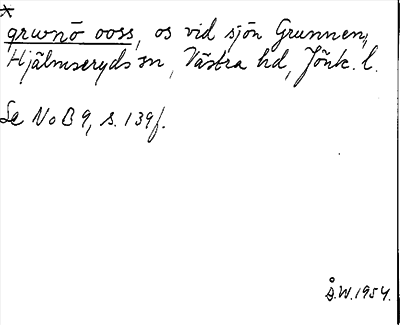 *
grwnō ooss, os vid sjön Grunnen,
Hjälmseryds sn, Västra hd, Jönk. l.
Se NoB 9, s. 139f.
Å.W. 1954.